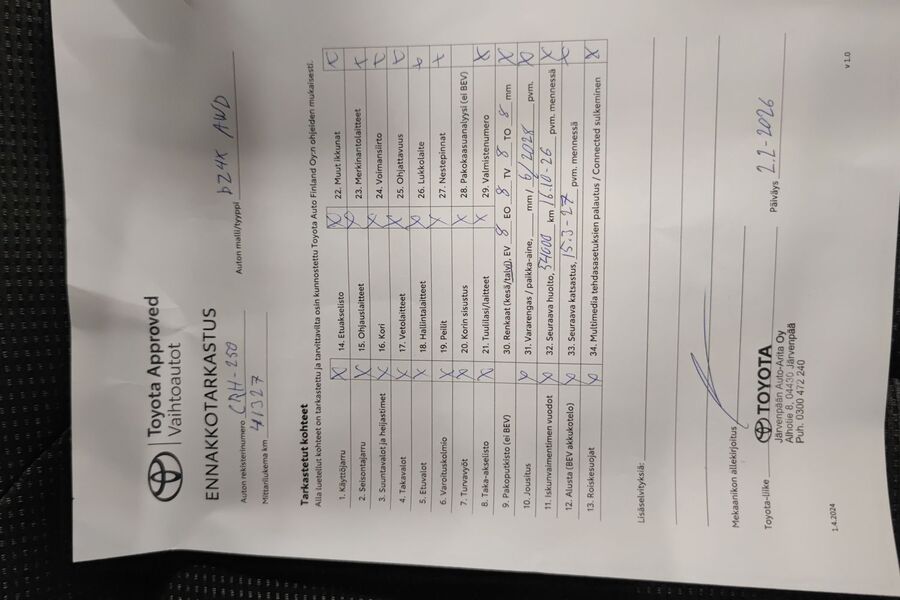 Toyota Approved
Vaihtoautot
ENNAKKOTARKASTUS
Auton rekisterinumero CRH-250 Auton malli/tyyppi bZ4X AWD
Mittarilukema km 41327
Tarkastetut kohteet
Alla luetellut kohteet on tarkastettu ja tarvittavilta osin kunnostettu Toyota Auto Finland Oy:n ohjeiden mukaisesti.
1. Käyttöjarru X 14. Etuakselisto X 22. Muut ikkunat X
2. Seisontajarru X 15. Ohjauslaitteet X 23. Merkinantolaitteet X
3. Suuntavalot ja heijastimet X 16. Kori X 24. Voimansiirto X
4. Takavalot X 17. Vetolaitteet X 25. Ohjattavuus X
5. Etuvalot X 18. Hallintalaitteet X 26. Lukkolaite X
6. Varoituskolmio X 19. Peilit X 27. Nestepinnat X
7. Turvavyöt X 20. Korin sisustus X 28. Pakokaasuanalyysi (ei BEV)
8. Taka-akselisto X 21. Tuulilasi/laitteet X 29. Valmistenumero X
9. Pakoputkisto (ei BEV) 30. Renkaat (kesä/talvi), EV 8 EO 8 TV 8 TO 8 mm X
10. Jousitus X 31. Vararengas / paikka-aine, mm / 6/2028 pvm. X
11. Iskunvaimentimen vuodot X 32. Seuraava huolto, 54000 km 16.10-26 pvm. mennessä X
12. Alusta (BEV akkukotelo) X 33. Seuraava katsastus, 15.3-27 pvm. mennessä X
13. Roiskesuojat X 34. Multimedia tehdasasetuksien palautus / Connected sulkeminen X
Lisäselvityksiä:
Mekaanikon allekirjoitus Päiväys 2.2-2026
Toyota-liike TOYOTA
Järvenpään Auto-Arita Oy
Alhotie 8, 04430 Järvenpää
Puh. 0300 472 240
1.4.2024 v 1.0